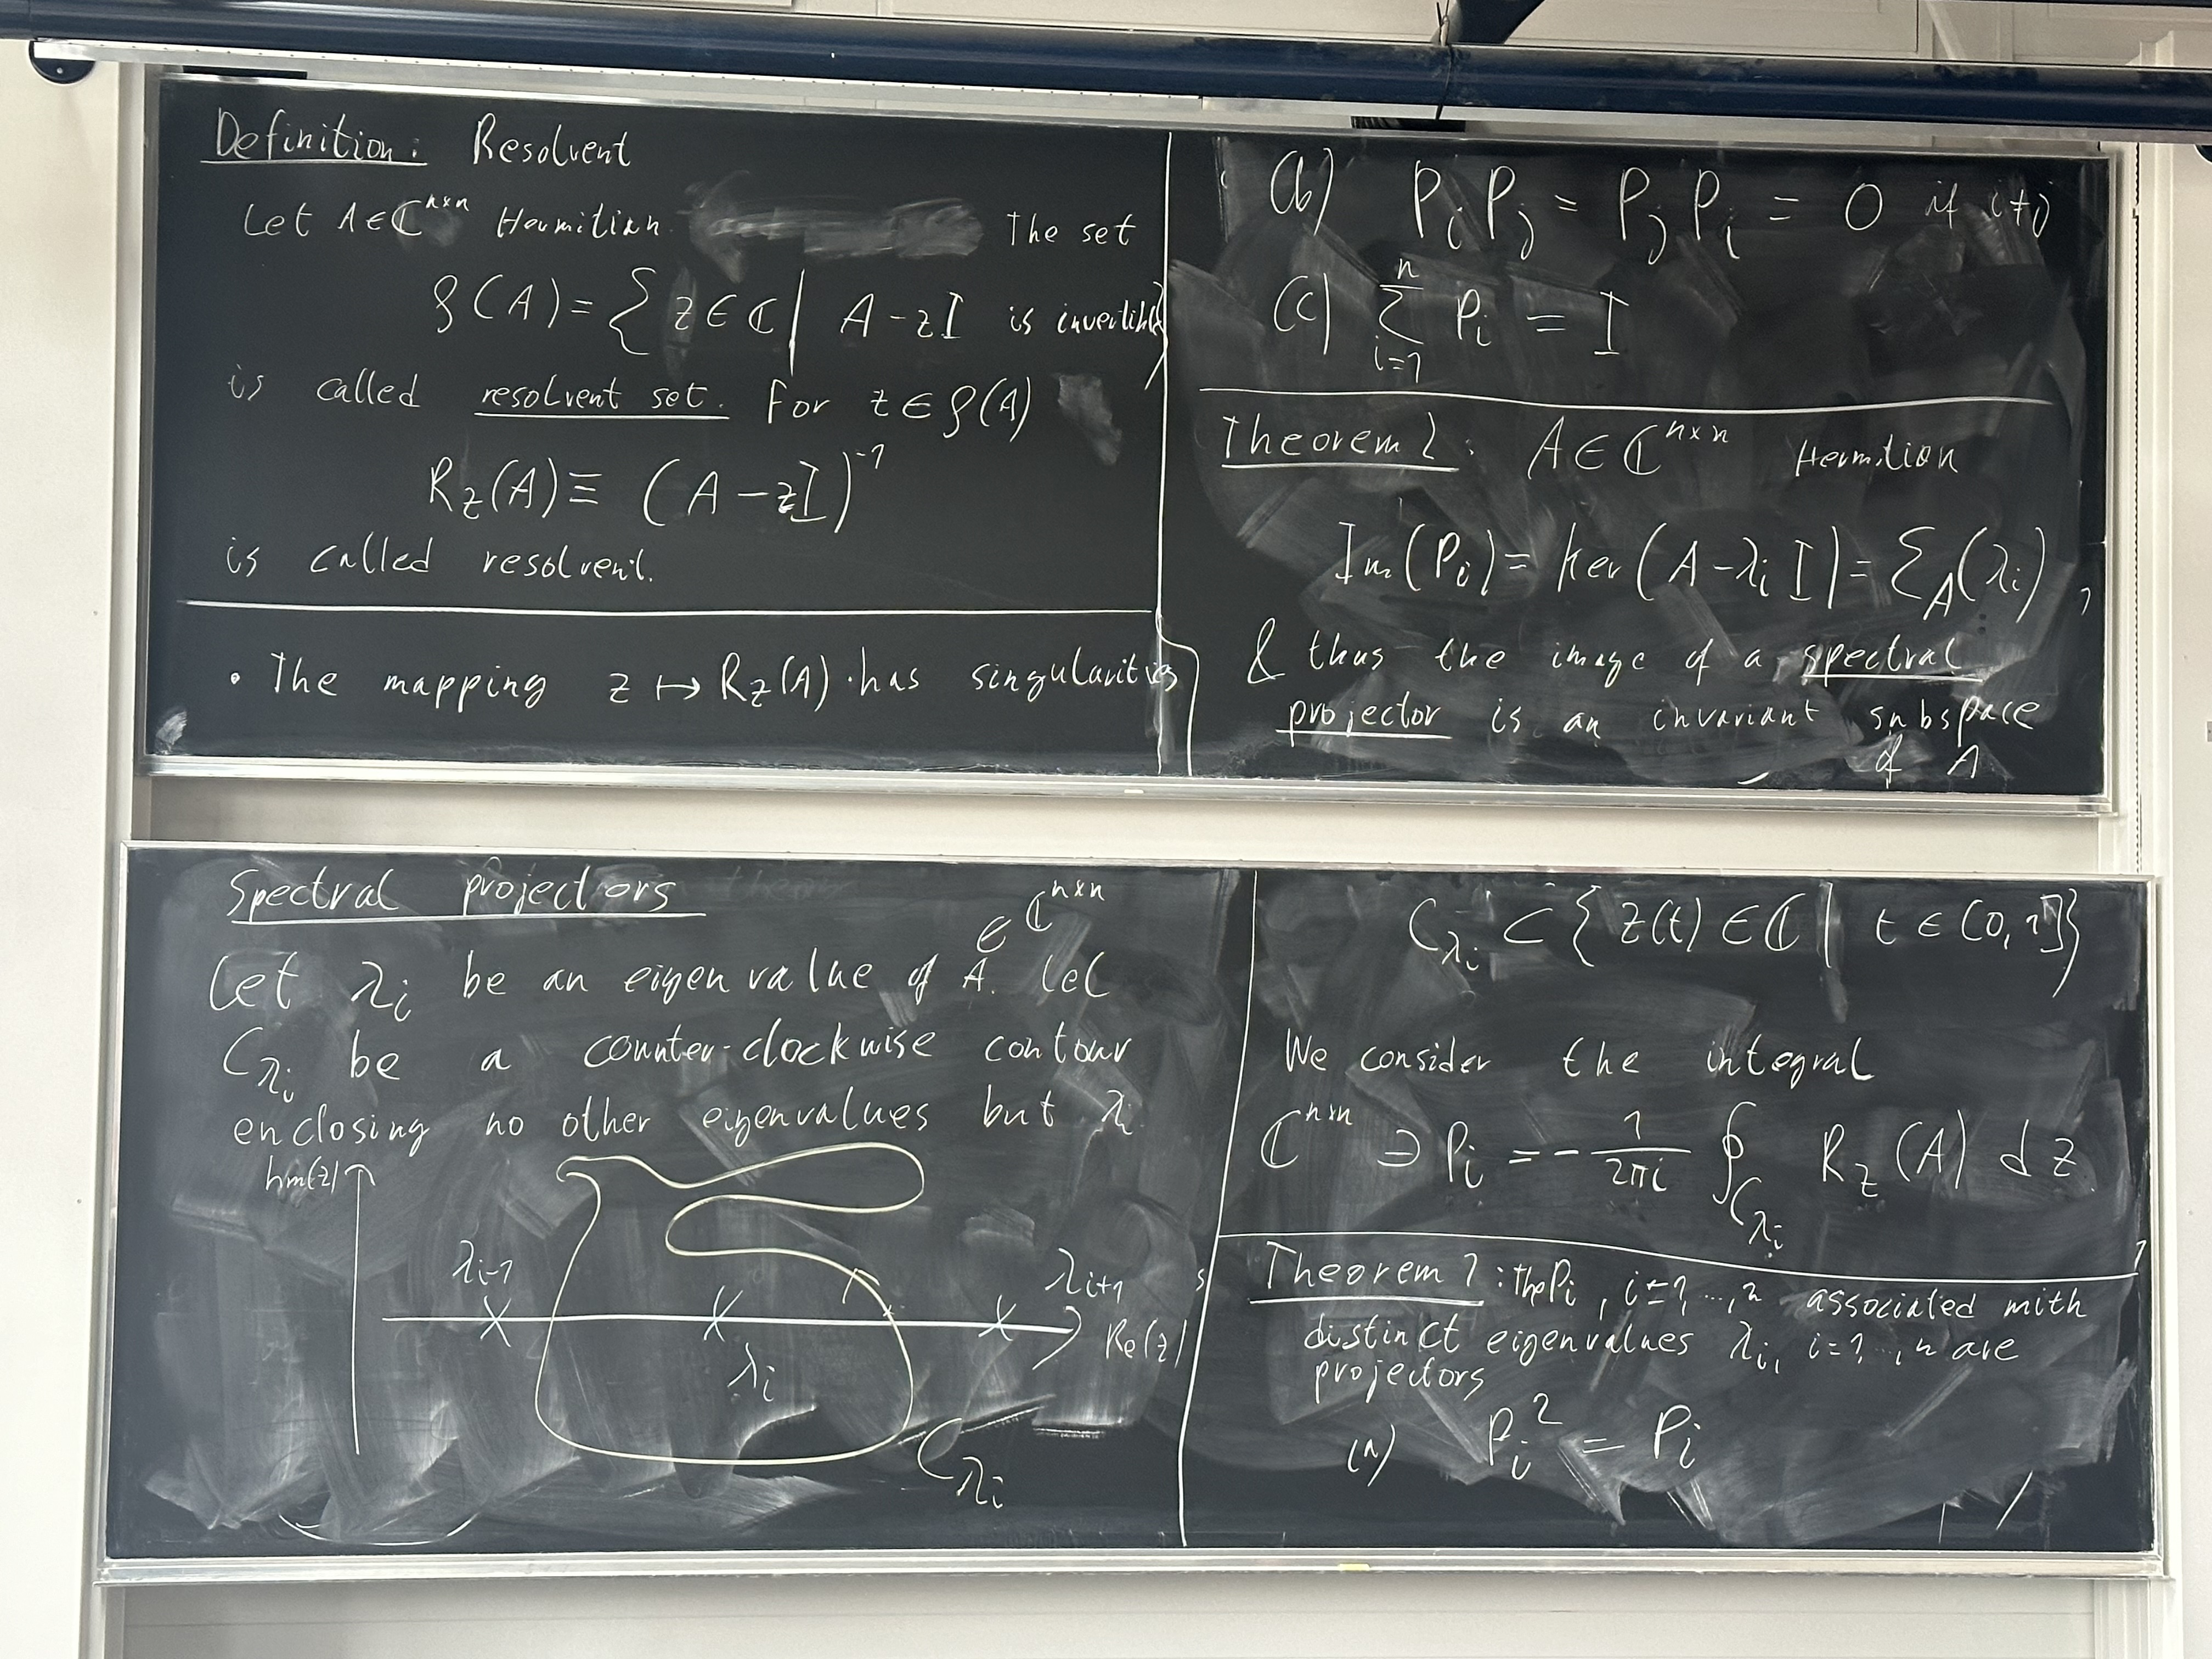 Definition: Resolvent
Let A ∈ ℂ^{n×n} Hermitian. The set
ρ(A) = { z ∈ ℂ | A - zI is invertible }
is called resolvent set. For z ∈ ρ(A)
R_z(A) ≡ (A - zI)^{-1}
is called resolvent.
• The mapping z ↦ R_z(A) has singularities
(b) P_i P_j = P_j P_i = 0 if i ≠ j
(c) ∑_{i=1}^{n} P_i = I
Theorem 2: A ∈ ℂ^{n×n} Hermitian
Im(P_i) = ker(A - λ_i I) = Σ_A(λ_i),
& thus the image of a spectral
projector is an invariant subspace
of A
Spectral projectors
Let λ_i be an eigenvalue of A ∈ ℂ^{n×n}. Let
C_{λ_i} be a counter-clockwise contour
enclosing no other eigenvalues but λ
Im(z)
λ_{i-1}
λ_i
λ_{i+1}
Re(z)
C_{λ_i}
C_{λ_i} ⊂ { z(t) ∈ ℂ | t ∈ [0, 1] }
We consider the integral
ℂ^{n×n} ∋ P_i = - \frac{1}{2πi} ∮_{C_{λ_i}} R_z(A) dz
Theorem 1: The P_i, i=1,...,n associated with
distinct eigenvalues λ_i, i=1...,n are
projectors
(a) P_i^2 = P_i